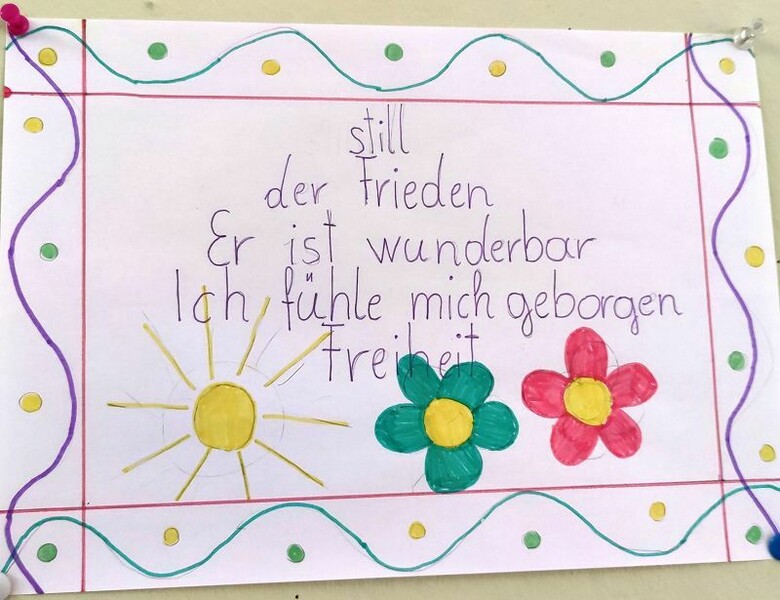 still
der Frieden
Er ist wunderbar
Ich fühle mich geborgen
Freiheit